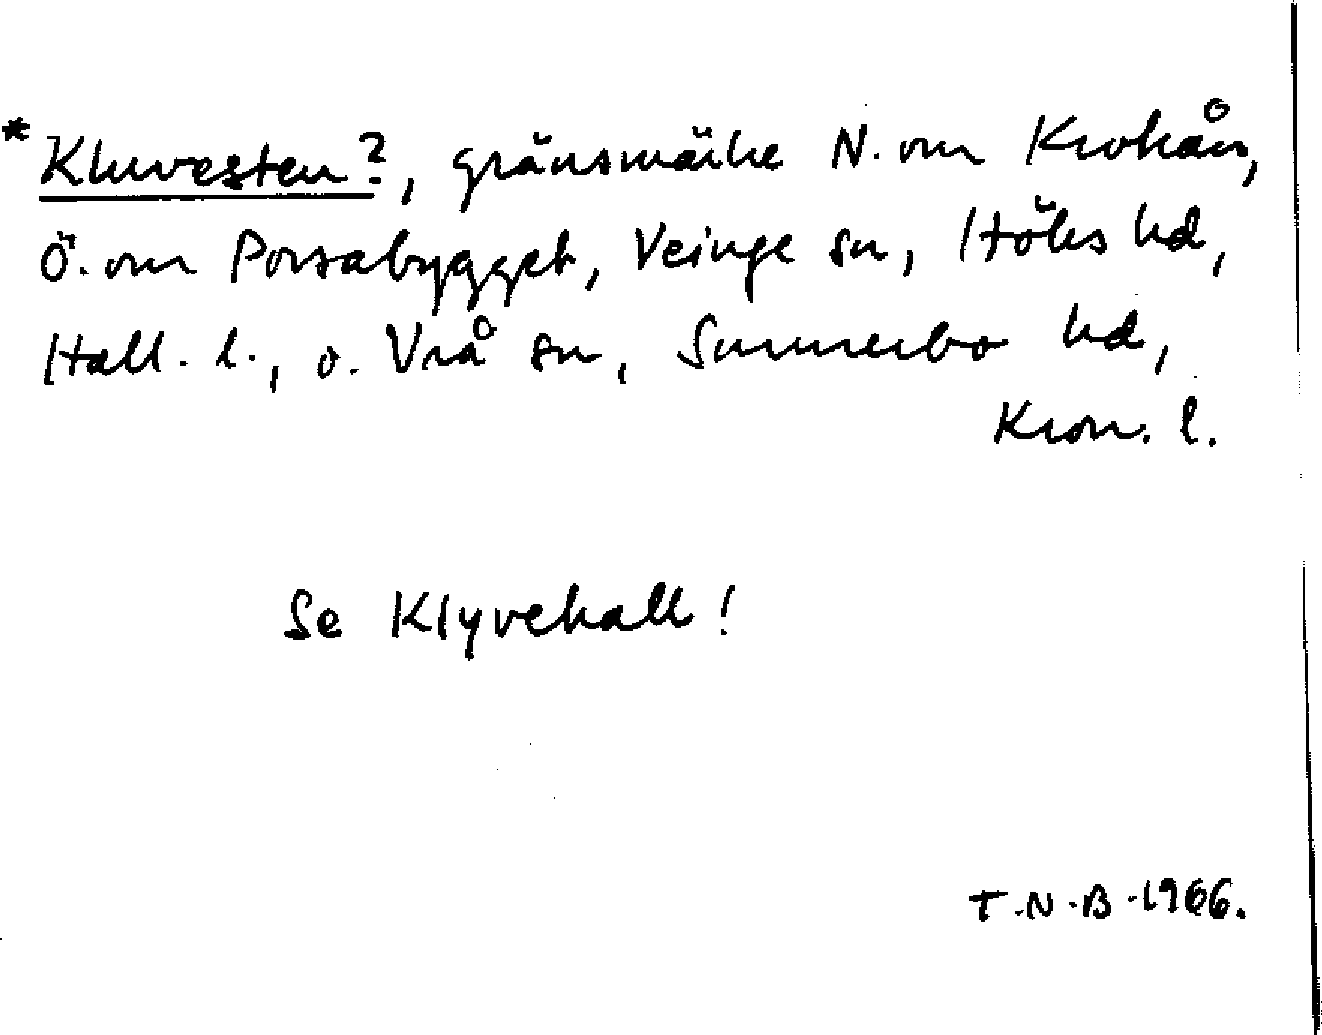 *Kluvesten?, gränsmärke N. om Krokån,
Ö. om Porsabygget, Veinge sn, Höks hd,
Hall. l., o. Vrå sn, Sunnerbo hd,
Kron. l.
Se Klyvehall!
T.N.B.1966.